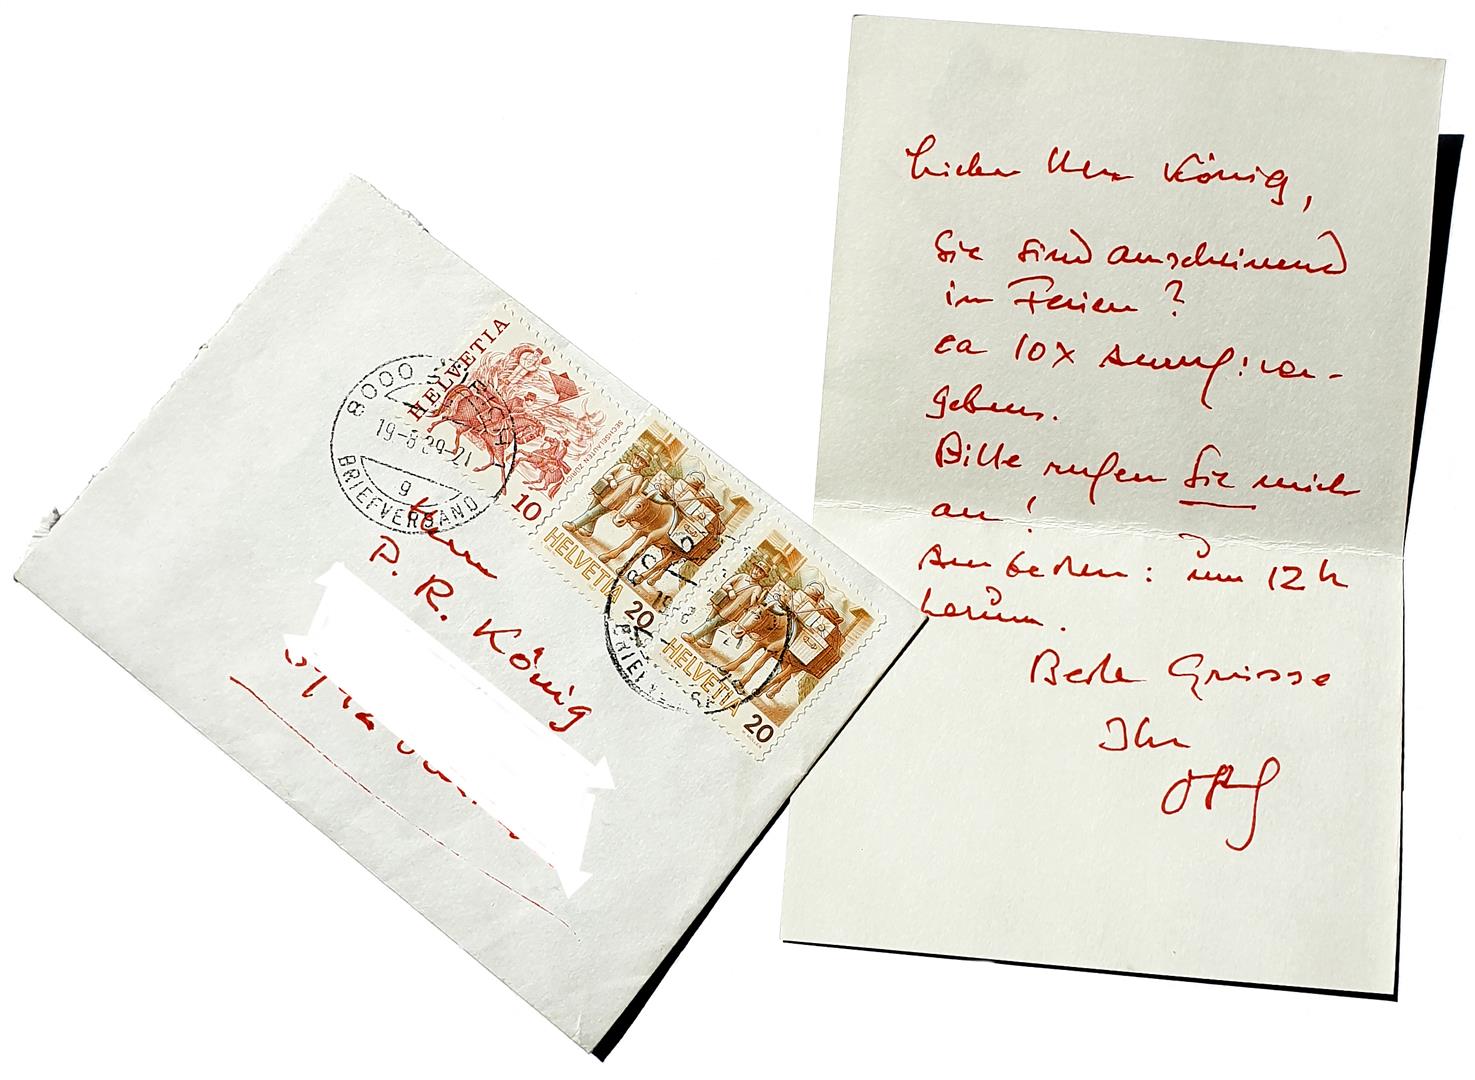 HELVETIA
SECHSELÄUTEN ZÜRICH
10
HELVETIA
20
HELVETIA
20
8000
19-8.89-21
9
BRIEFVERSAND
Herrn
P. R. König
Lieber Herr König,
Sie sind anscheinend
in Ferien?
ca 10x Anruf: ver-
gebens.
Bitte rufen Sie mich
an!
Am besten: um 12 h
herum.
Beste Grüsse
Ihr